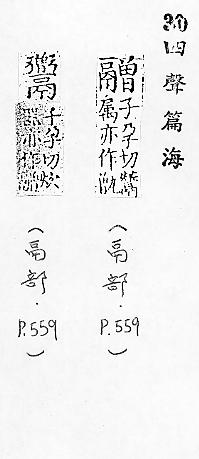 30四聲篇海
䰝子孕切鬵
属亦作
(鬲部．P.559)
子孕切炊
器亦作
(鬲部．P.559)